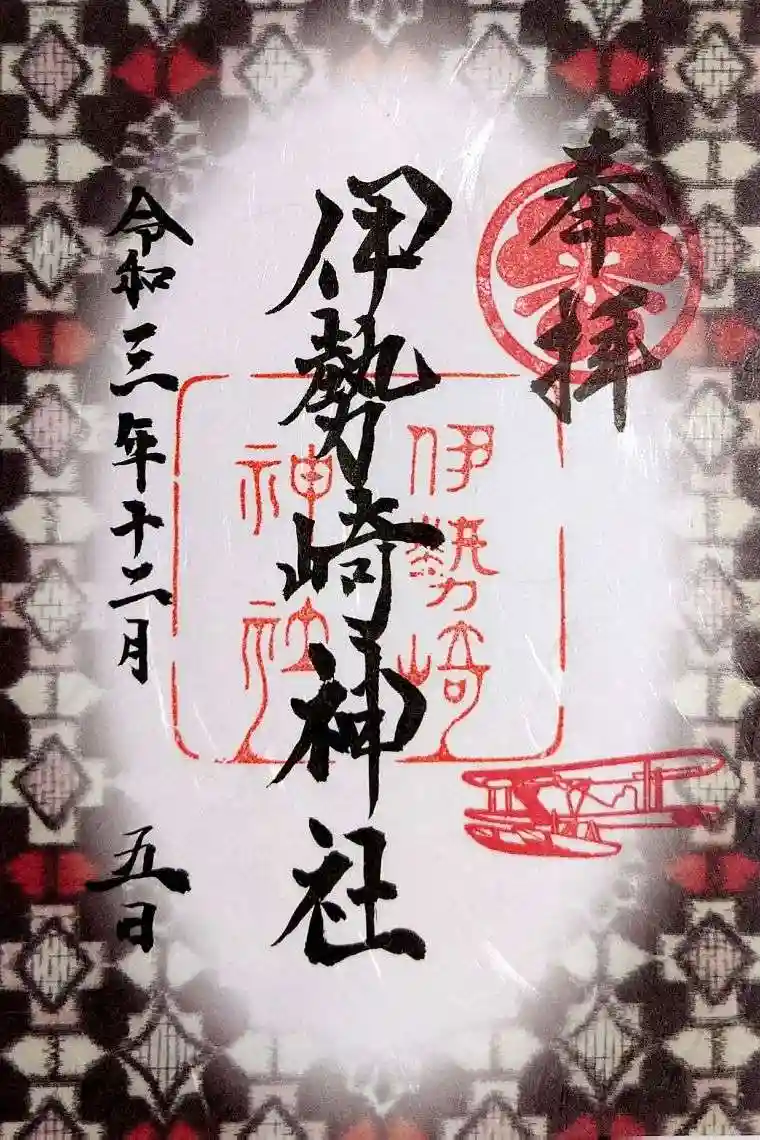 奉拝
伊勢崎神社
伊勢崎
神社
令和三年十二月
五日